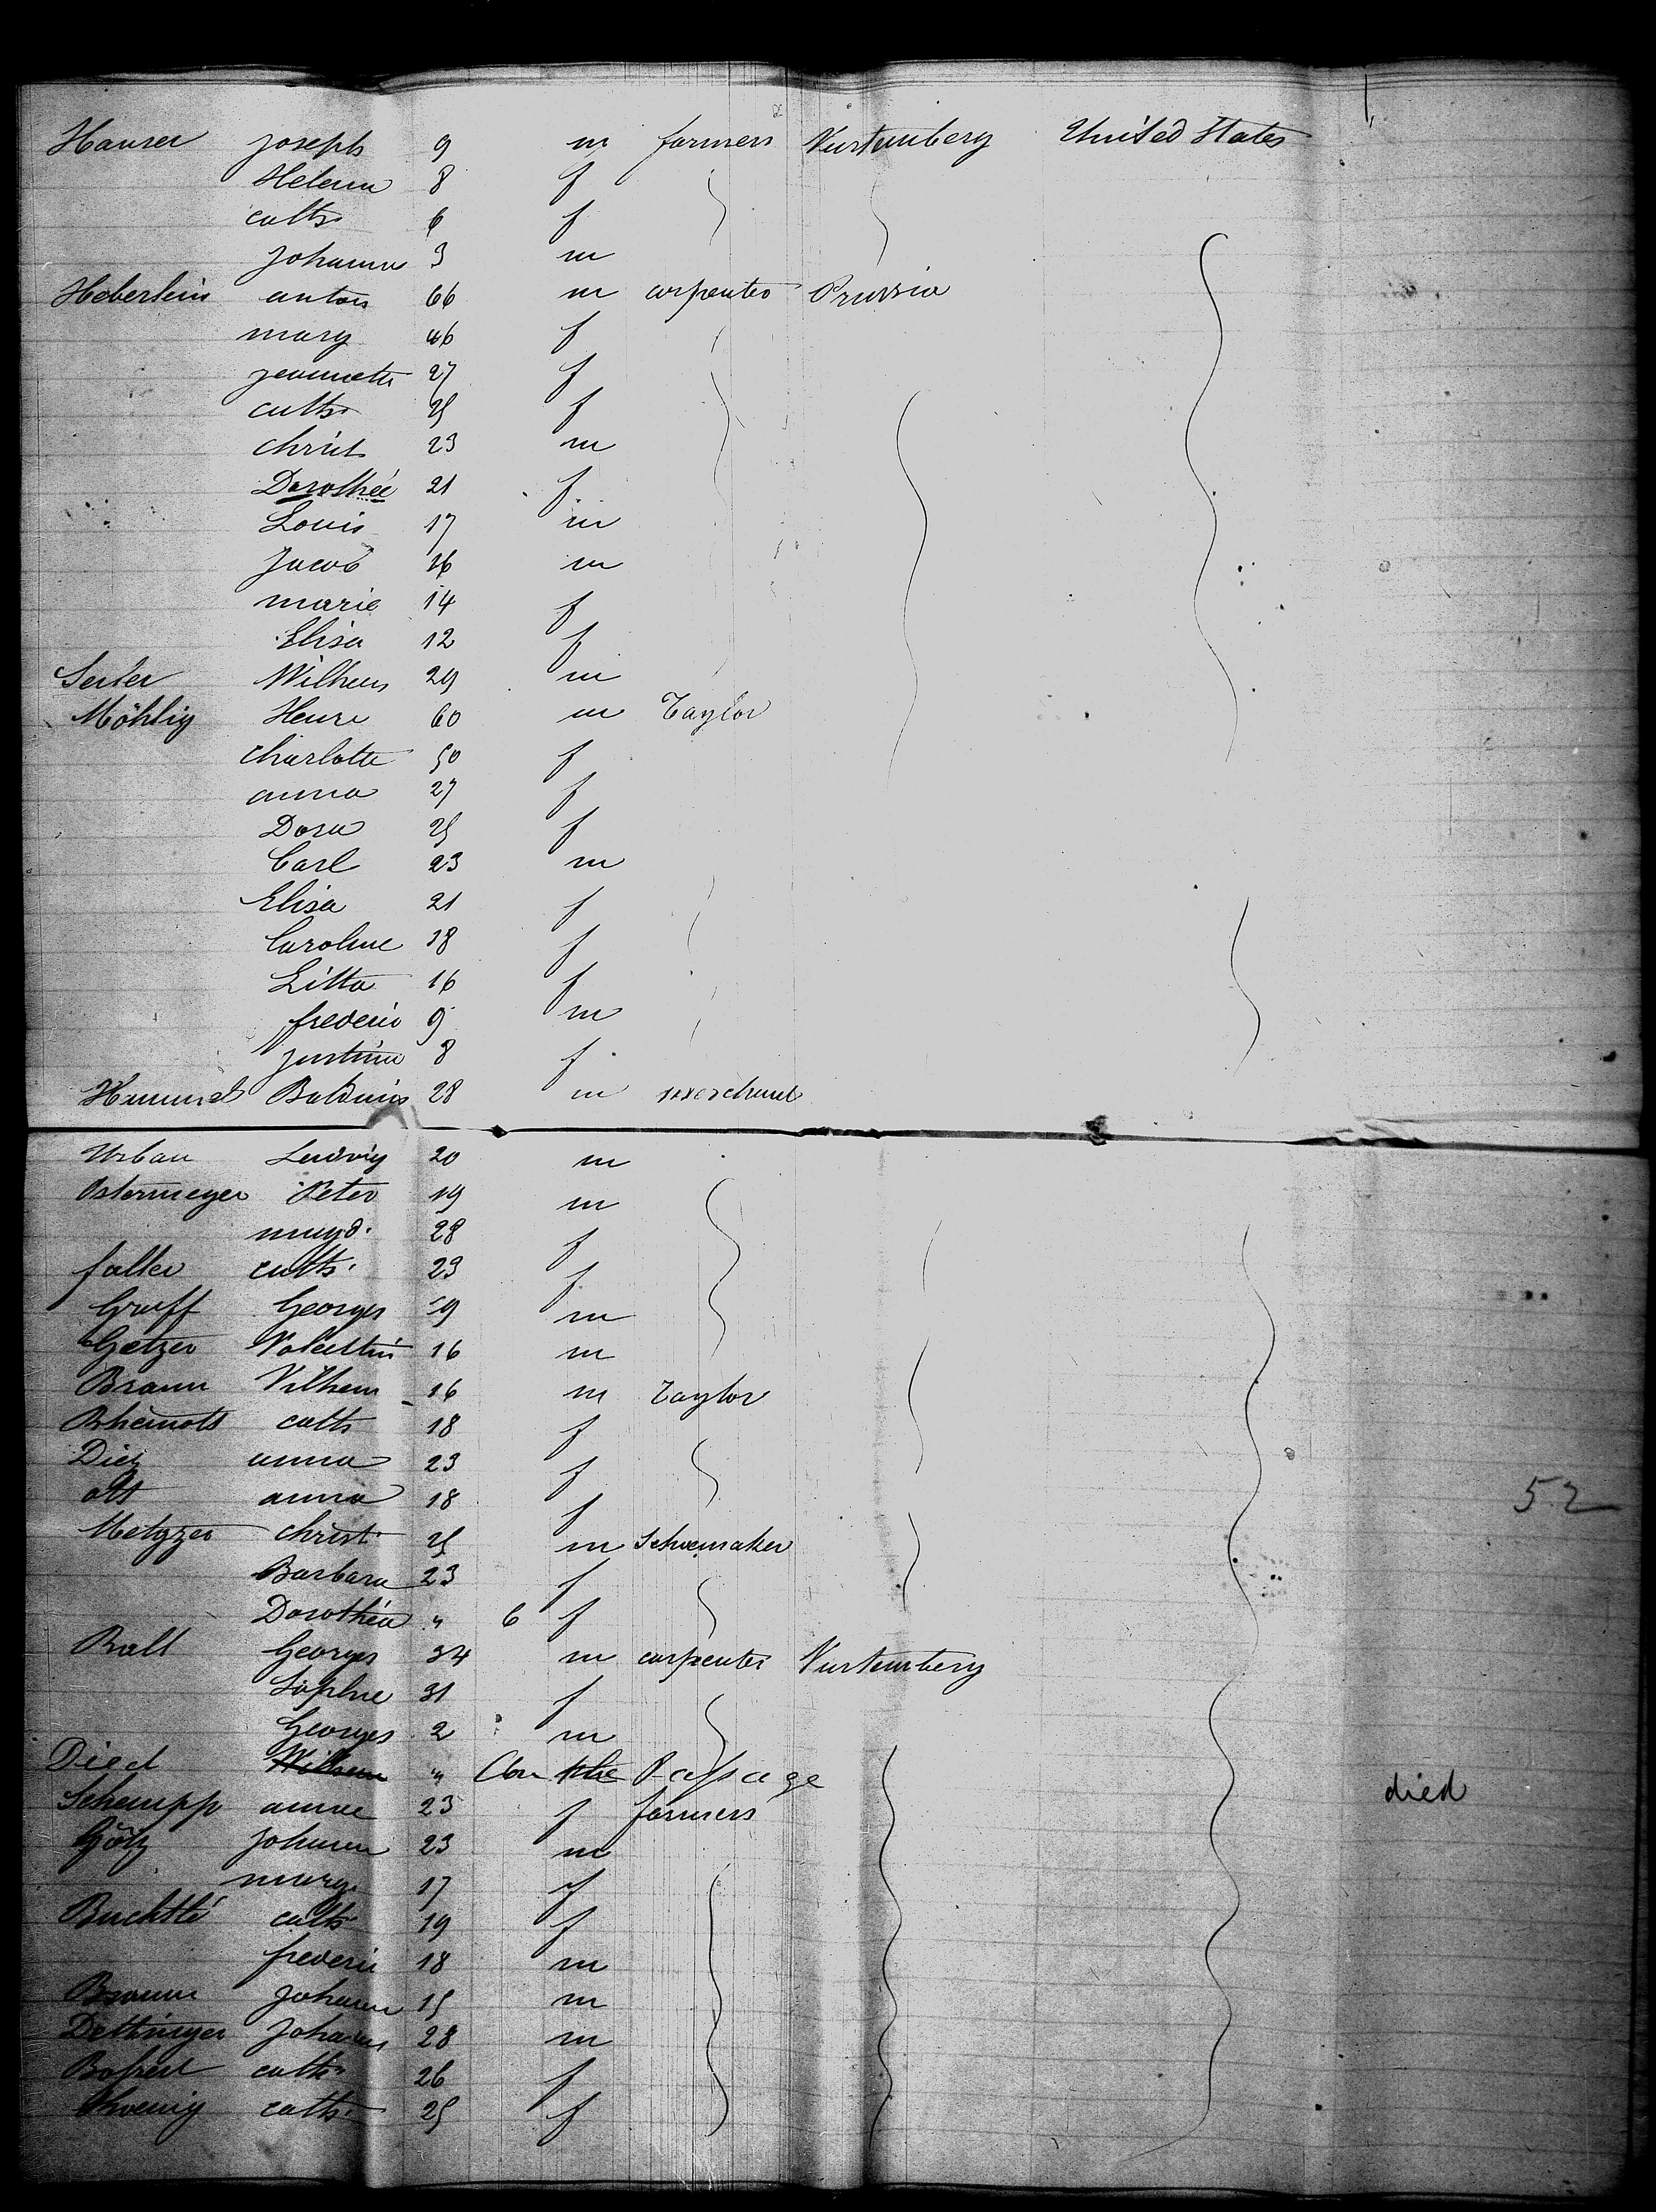 Hauser Joseph 9 m farmers Vurtemberg United States
Helena 8 f
cath. 6 f
Johann 3 m
Heberlein anton 66 m carpenter Prussia
mary 46 f
jeannette 27 f
cath. 25 f
christ 23 m
Dorothée 21 f
Louis 17 m
Jacob 16 m
marie 14 f
Elisa 12 f
Seiler Wilhem 29 m
Möhlig Henri 60 m Taylor
charlotte 50 f
anna 27 f
Dora 25 f
Carl 23 m
Elisa 21 f
Caroline 18 f
Litta 16 f
frederic 9 m
justina 8 f
Hummel Balduin 28 m merchant
Urban Ludwig 20 m
Ostermeyer Peter 19 m
magd. 28 f
faller cath. 23 f
Graff Georges 19 m
Getzer Valentin 16 m
Braun Vilhem 16 m Taylor
cath 18 f
Diez anna 23 f
ott anna 18 f 52
Metzger christ 25 m Schoemaker
Barbara 23 f
Dorothéa " 6 f
Ball Georges 34 m carpenter Vurtemberg
Sophie 31 f
Georges 2 m
Died Wilhem " on the Passage died
Schempp anna 23 f farmers
Götz Johann 23 m
marg. 17 f
Buchtlé cath 19 f
frederic 18 m
Braun Johann 15 m
Dettinger Johann 28 m
cath. 26 f
Koenig cath. 25 f